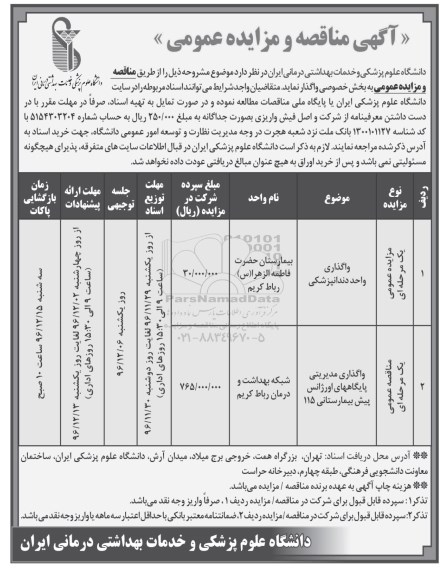 « آگهی مناقصه و مزایده عمومی »
دانشگاه علوم پزشکی و خدمات بهداشتی درمانی ایران
دانشگاه علوم پزشکی و خدمات بهداشتی درمانی ایران در نظر دارد موضوع مشروحه ذیل را از طریق مناقصه
و مزایده عمومی به بخش خصوصی واگذار نماید. متقاضیان واجد شرایط می توانند اسناد مربوطه را در سایت
دانشگاه علوم پزشکی ایران یا پایگاه ملی مناقصات مطالعه نموده و در صورت تمایل به تهیه اسناد، صرفاً در مهلت مقرر با در
دست داشتن معرفینامه از شرکت و اصل فیش واریزی بصورت جداگانه به مبلغ ۲۵۰/۰۰۰ ریال به حساب شماره ۵۱۵۴۳۰۳۲۰۴
با کد شناسه ۱۳۰۰۱۰۱۱۲۷ بانک ملت نزد شعبه هجرت در وجه مدیریت نظارت و توسعه امور عمومی دانشگاه، جهت خرید اسناد به
آدرس ذکر شده مراجعه نمایند. لازم به ذکر است دانشگاه علوم پزشکی ایران در قبال اطلاعات سایت های متفرقه، پذیرای هیچگونه
مسئولیتی نمی باشد و پس از خرید اوراق به هیچ عنوان مبالغ دریافتی عودت داده نخواهد شد.
ردیف
نوع مزایده
موضوع
نام واحد
مبلغ سپرده شرکت در مزایده (ریال)
مهلت توزیع اسناد
جلسه توجیهی
مهلت ارائه پیشنهادات
زمان بازگشایی پاکات
۱
مزایده عمومی یک مرحله ای
واگذاری واحد دندانپزشکی
بیمارستان حضرت فاطمه الزهرا(س) رباط کریم
۳۰/۰۰۰/۰۰۰
از روز یکشنبه ۹۶/۱۱/۲۹ لغایت روز دوشنبه ۹۶/۱۱/۳۰
(ساعت ۹ الی ۱۵:۳۰ روزهای اداری)
روز یکشنبه ۹۶/۱۲/۰۶
از روز چهارشنبه ۹۶/۱۲/۰۲ لغایت روز یکشنبه ۹۶/۱۲/۱۳
(ساعت ۹ الی ۱۵:۳۰ روزهای اداری)
سه شنبه ۹۶/۱۲/۱۵ ساعت ۱۰ صبح
۲
مناقصه عمومی یک مرحله ای
واگذاری مدیریتی پایگاههای اورژانس پیش بیمارستانی ۱۱۵
شبکه بهداشت و درمان رباط کریم
۷۶۵/۰۰۰/۰۰۰
ParsNamadData
۰۲۱-۸۸۳۴۹۶۷۰-۵
** آدرس محل دریافت اسناد: تهران، بزرگراه همت، خروجی برج میلاد، میدان آرش، دانشگاه علوم پزشکی ایران، ساختمان
معاونت دانشجویی فرهنگی، طبقه چهارم، دبیرخانه حراست
** هزینه چاپ آگهی به عهده برنده مناقصه / مزایده می‌باشد.
تذکر۱: سپرده قابل قبول برای شرکت در مناقصه/ مزایده ردیف ۱، صرفاً واریز وجه نقد می باشد.
تذکر۲: سپرده قابل قبول برای شرکت در مناقصه/ مزایده ردیف ۲، ضمانتنامه معتبر بانکی با حداقل اعتبار سه ماهه یا واریز وجه نقد می باشد.
دانشگاه علوم پزشکی و خدمات بهداشتی درمانی ایران